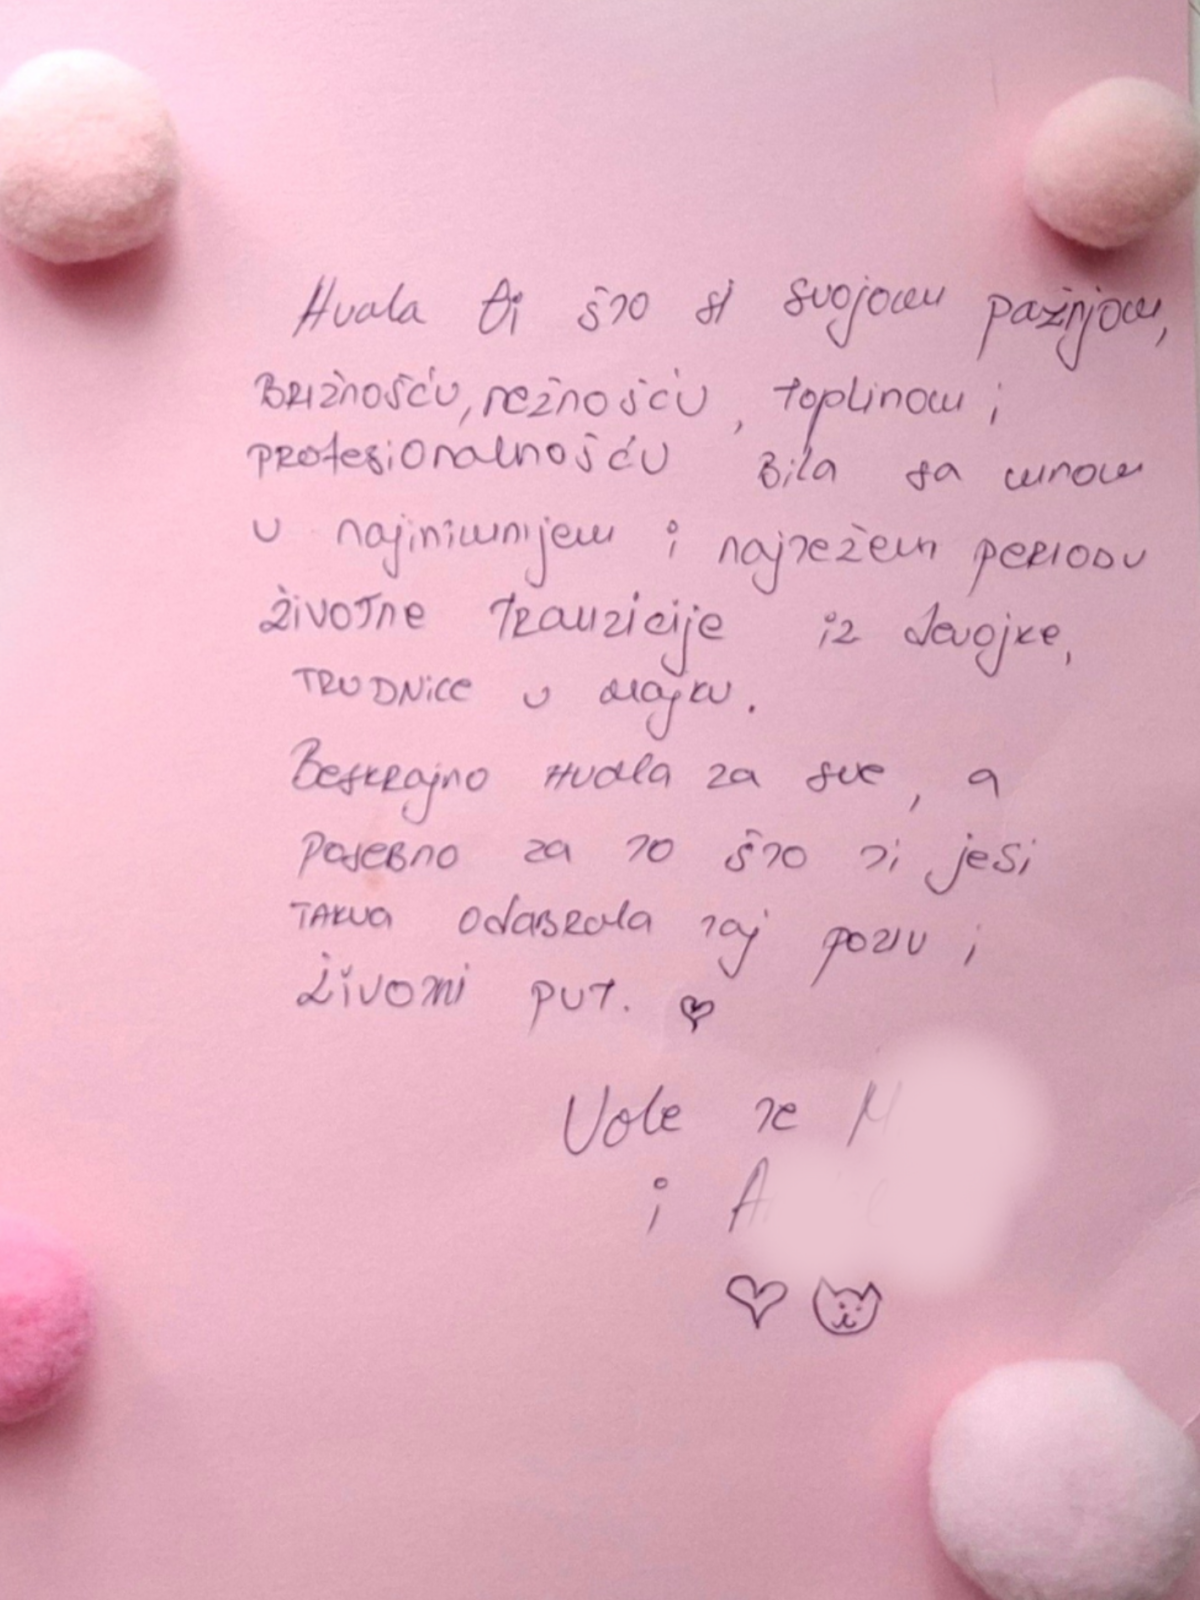 Hvala ti što si svojom pažnjom,
BRIŽNOŠĆU, NEŽNOŠĆU, toplinom i
profesionalnošću Bila sa mnom
u najinimnijem i najtežem periodu
životne tranzicije iz devojke,
TRUDNICE u majku.
Beskrajno Hvala za sve, a
posebno za to što ti jesi
TAKVA odabrala taj poziv i
životni put. ♡
Vole te M
i A